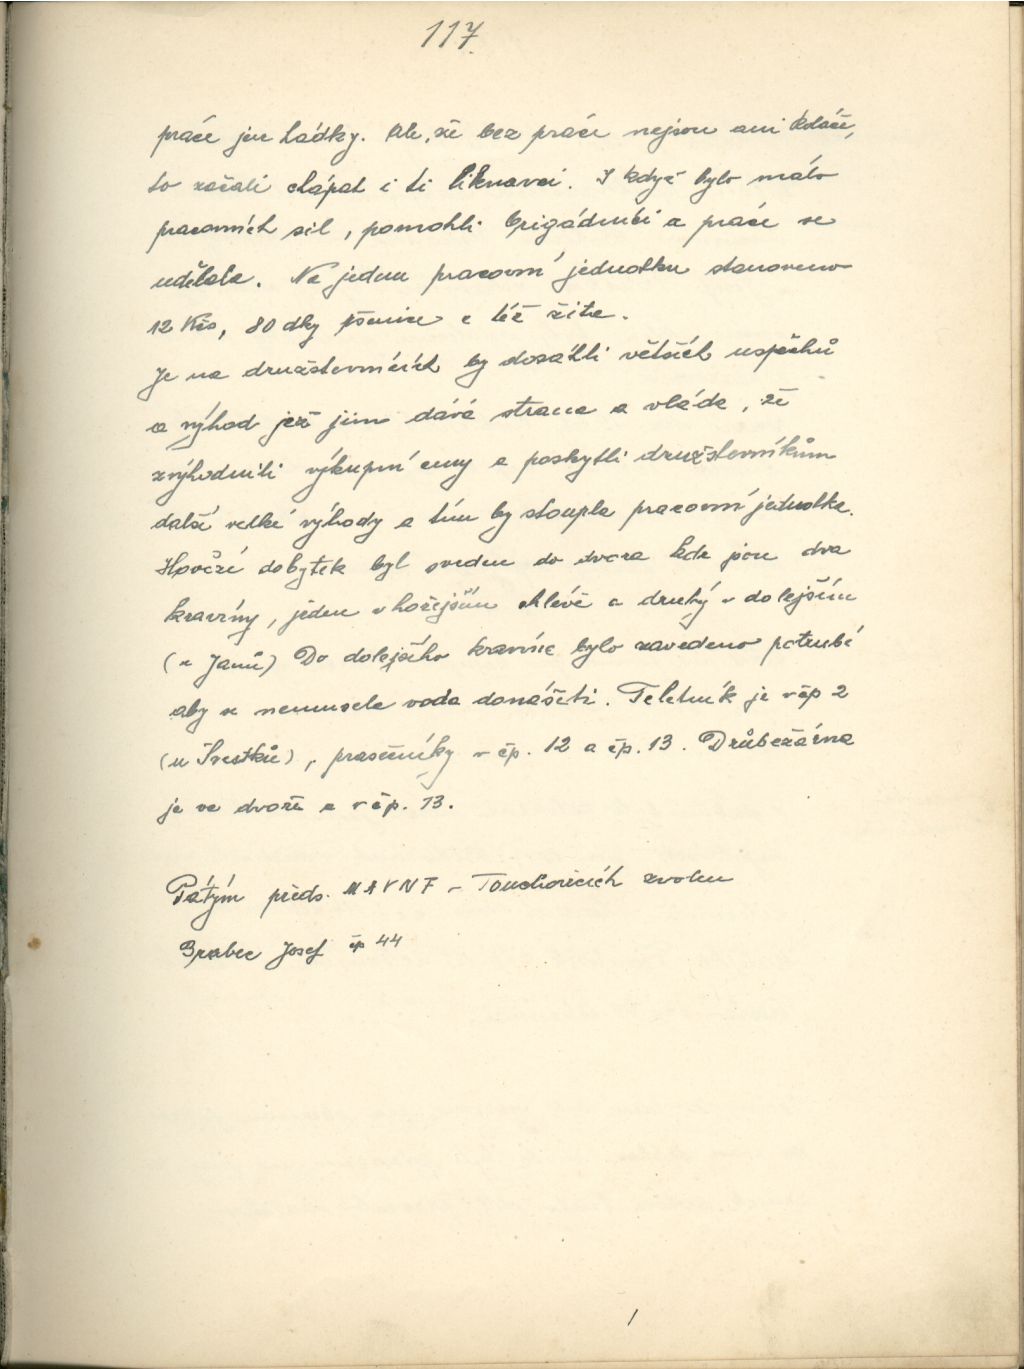 117.
práce jen hádky. Ale, že bez práce nejsou ani koláče,
to začali chápat i ti liknavci. I když bylo málo
pracovních sil, pomohli brigádníci a práce se
udělala. Na jednu pracovní jednotku stanoveno
12 Kčs, 80 dkg pšenice a též žita.
Je na družstevnících by dosáhli větších uspěchů
a výhod jež jim dává strana a vláda, že
zvýhodnili výkupní ceny a poskytli družstevníkům
další velké výhody a tím by stoupla pracovní jednotka.
Hovězí dobytek byl sveden do dvora kde jsou dva
kravíny, jeden v hořejším chlévě a druhý v dolejším
(u Janů) Do dolejšího kravína bylo zavedeno potrubí
aby se nemusela voda donášeti. Teletník je v čp 2
(u Švestků), prasečníky v čp. 12 a čp. 13. Drůbežárna
je ve dvoře a v čp. 13.
Pátým předs. MNV v Touchovicích zvolen
Brabec Josef čp 44